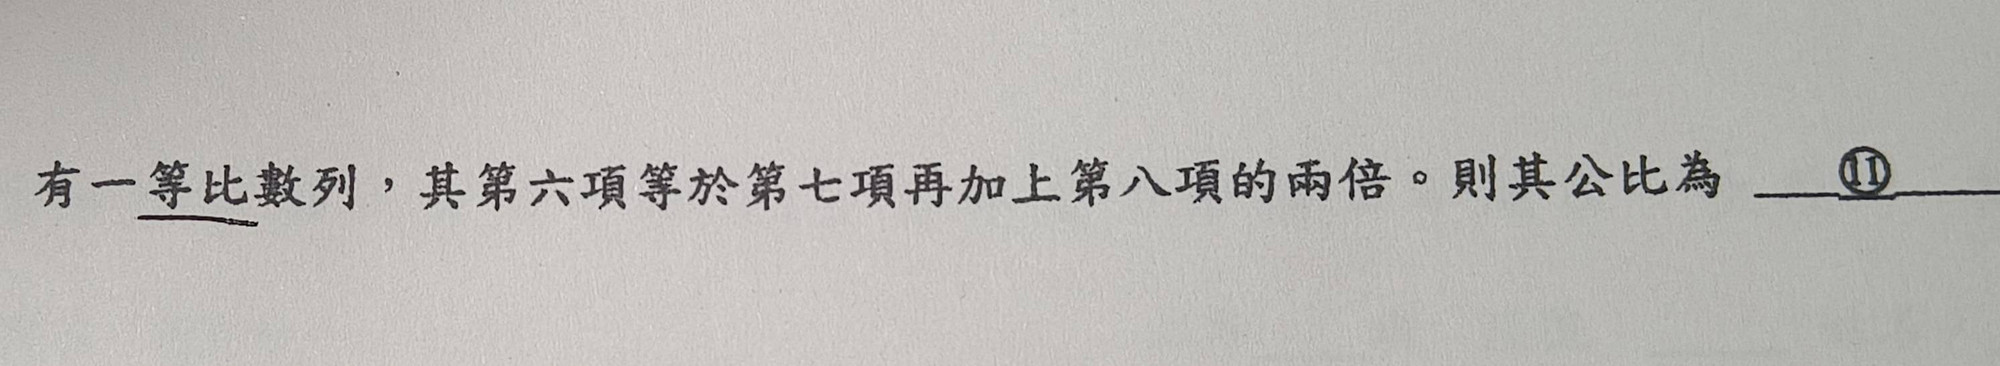 有一等比數列，其第六項等於第七項再加上第八項的兩倍。則其公比為 ⑪